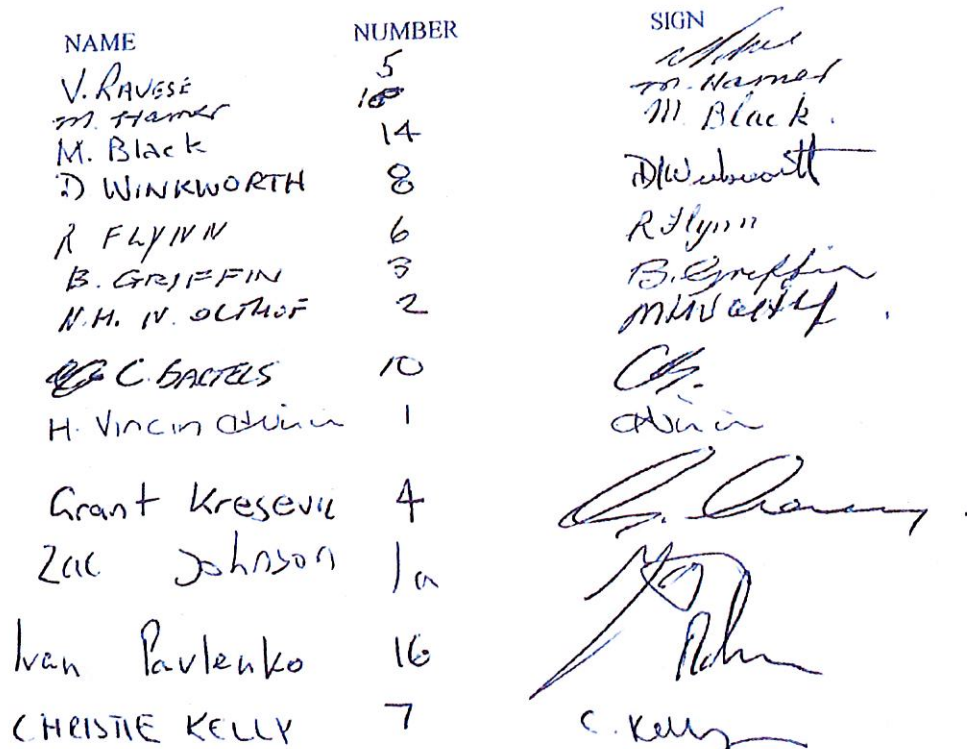 NAME NUMBER SIGN
V. RAVESE 5
M. Hamer M. Hamer
M. Black 14 M. Black.
D WINKWORTH 8 D Winkworth
R FLYNN 6 R Flynn
B. GRIFFIN 3 B. Griffin
N.H. N. OLTHOF 2
C. BARTELS 10 CB.
H. Vincin 1
Grant Kresevic 4
Zac Johnson 1a
Ivan Pavlenko 16
CHRISTIE KELLY 7 C. Kelly